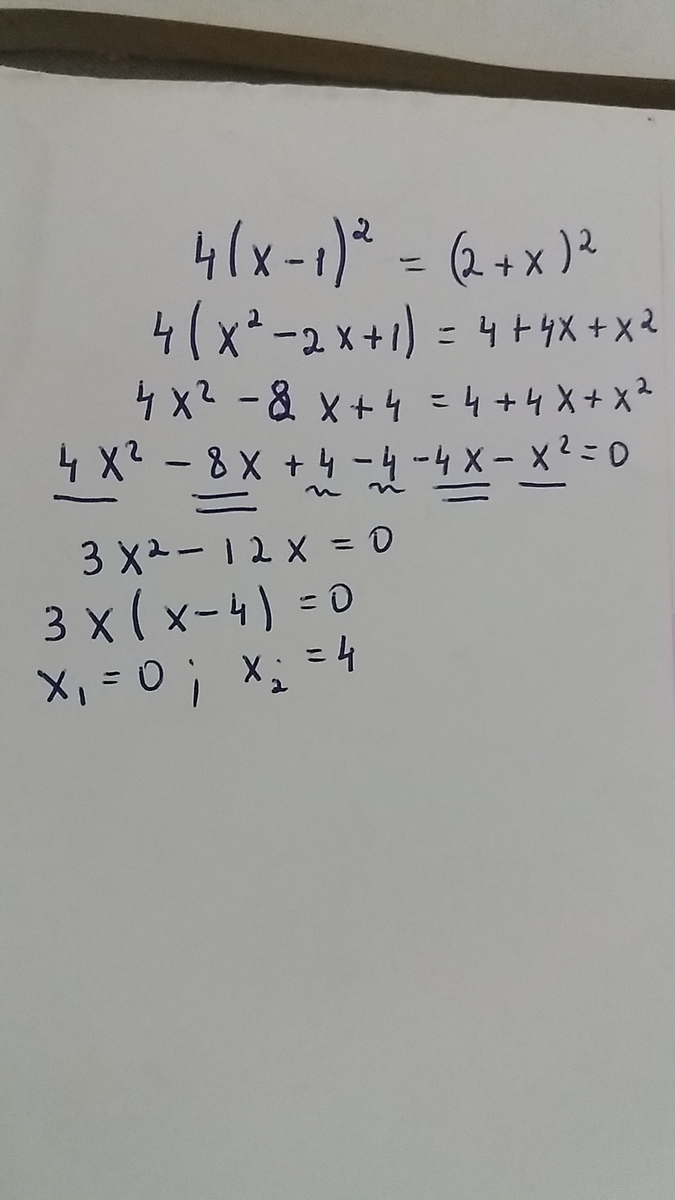 4(x-1)² = (2+x)²
4(x²-2x+1) = 4+4x+x²
4x²-8x+4 = 4+4x+x²
4x²-8x+4-4-4x-x²=0
3x²-12x=0
3x(x-4)=0
x₁=0; x₂=4